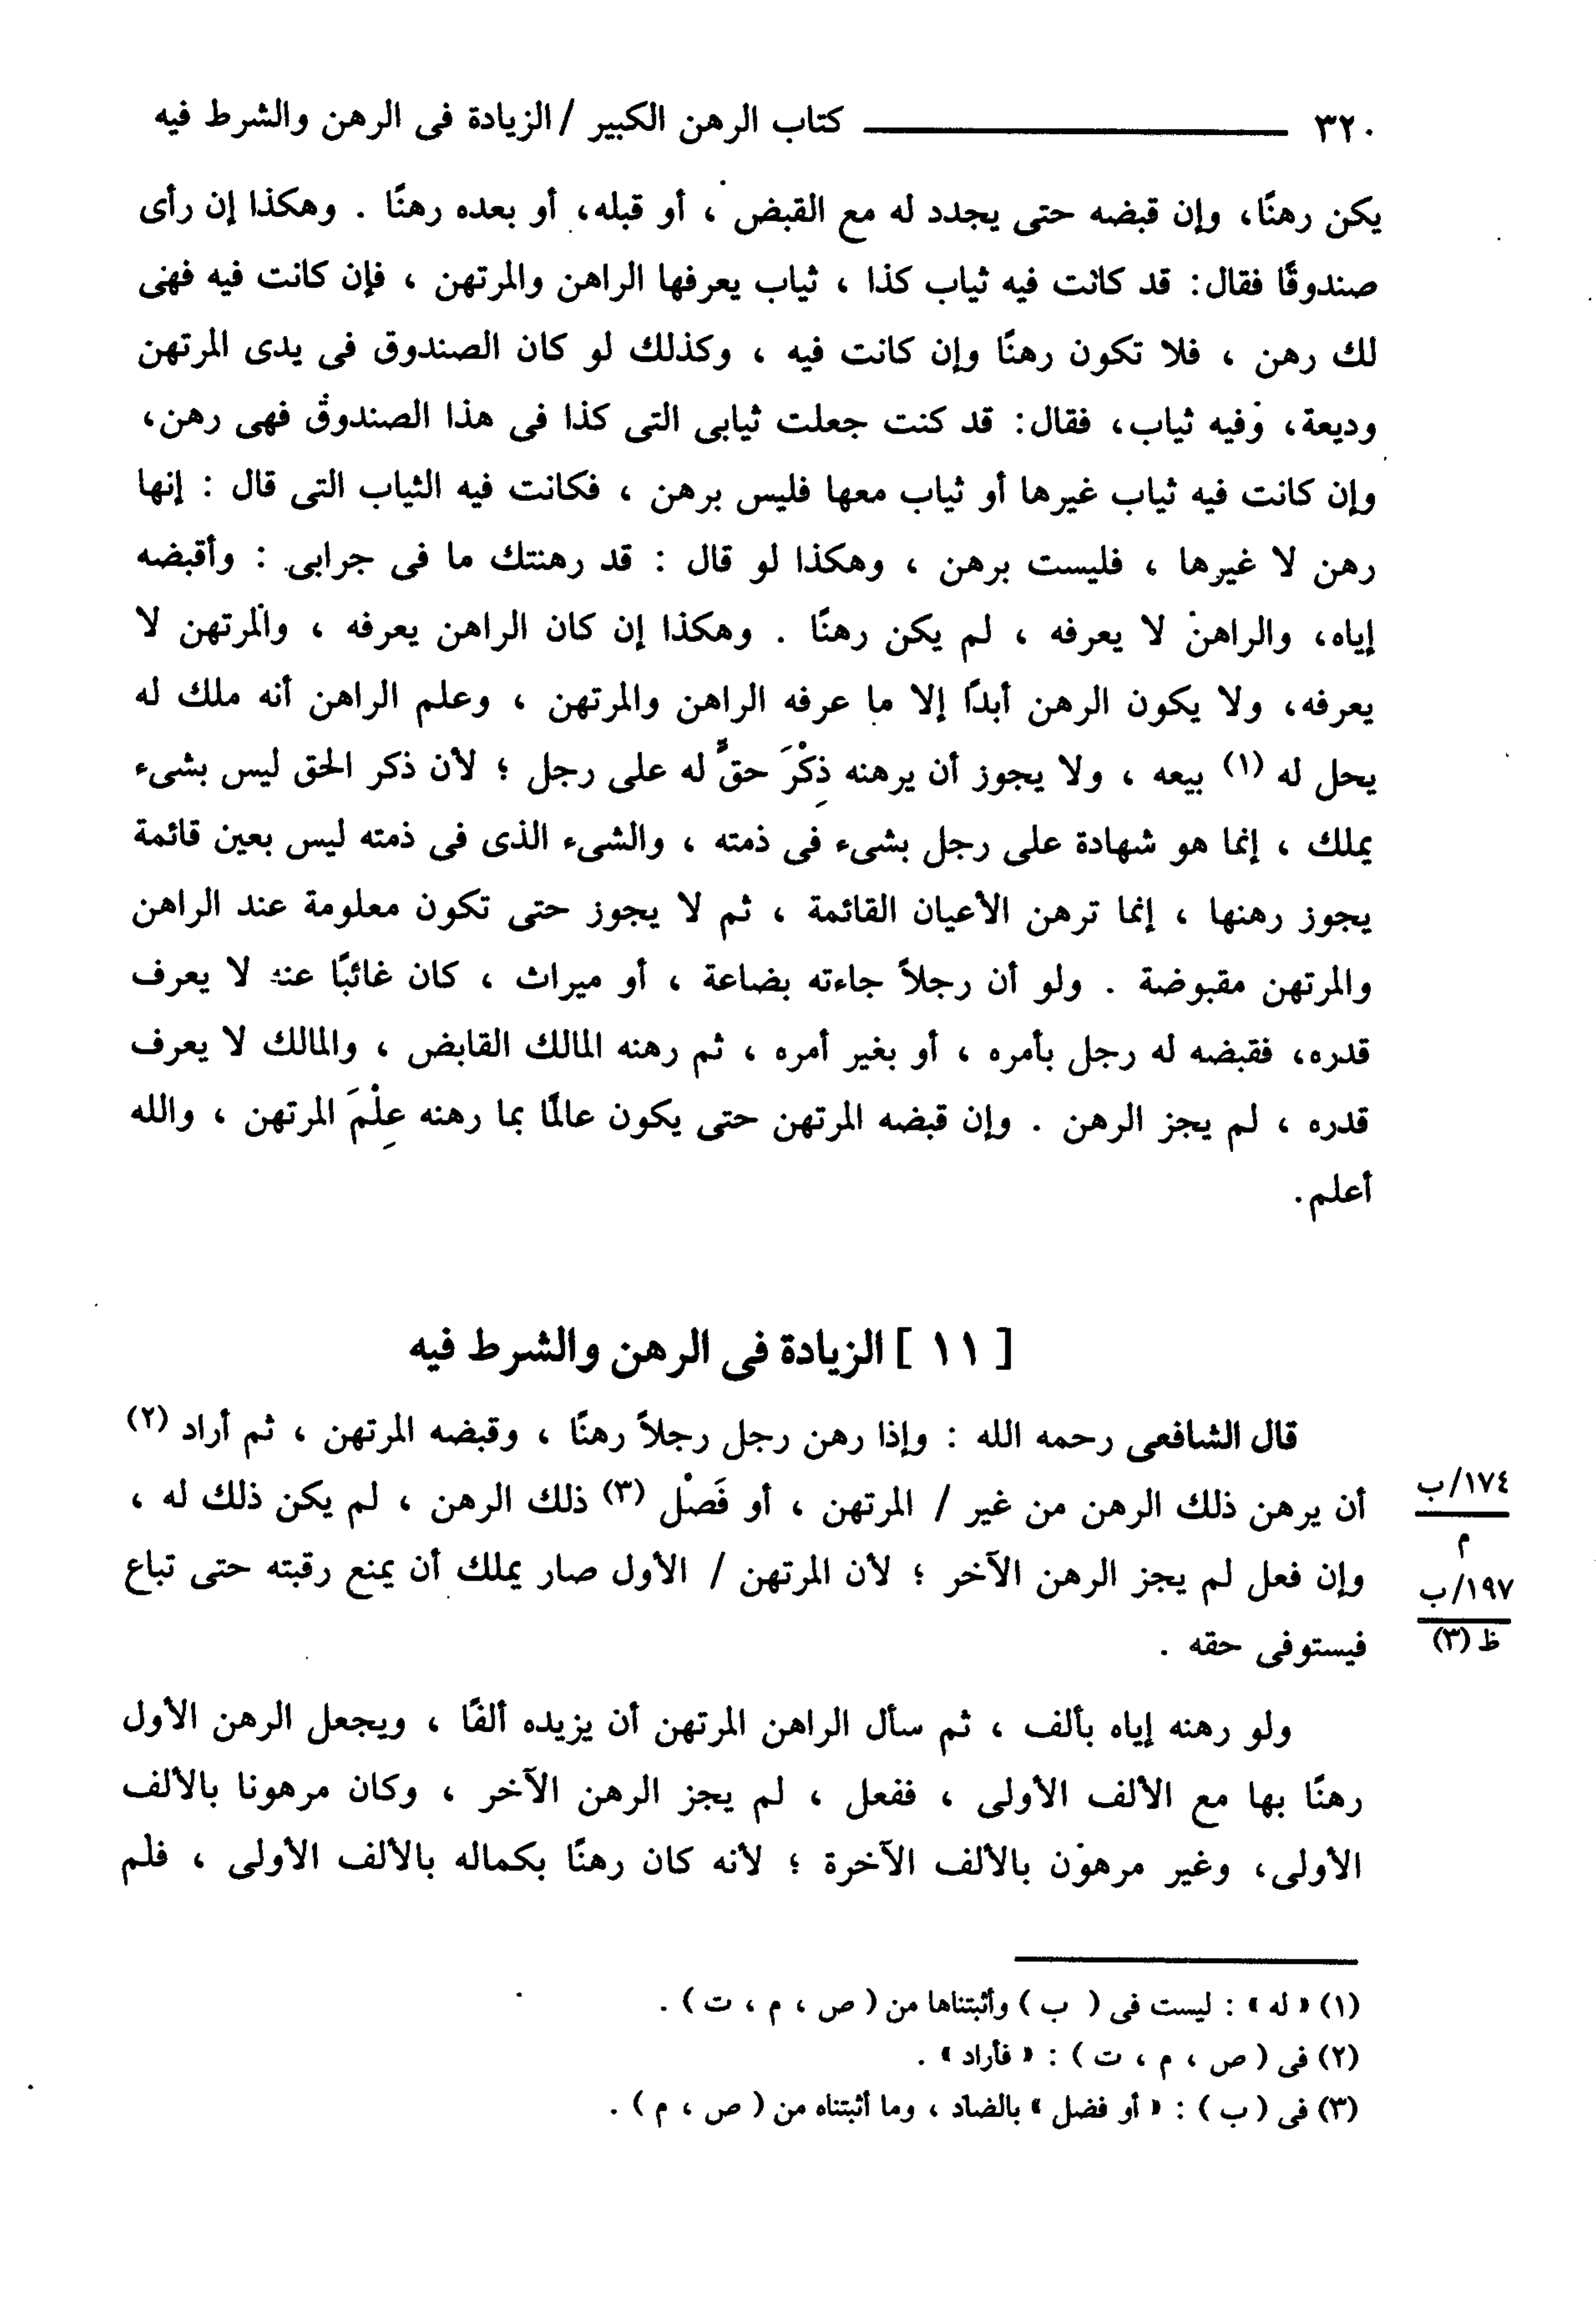 ٣٢٠ ــــــــــــــــ كتاب الرهن الكبير / الزيادة فى الرهن والشرط فيه
يكن رهنًا، وإن قبضه حتى يجدد له مع القبض ، أو قبله، أو بعده رهنًا . وهكذا إن رأى
صندوقًا فقال: قد كانت فيه ثياب كذا ، ثياب يعرفها الراهن والمرتهن ، فإن كانت فيه فهى
لك رهن ، فلا تكون رهنًا وإن كانت فيه ، وكذلك لو كان الصندوق فى يدى المرتهن
وديعة، وفيه ثياب، فقال: قد كنت جعلت ثيابى التى كذا فى هذا الصندوق فهى رهن،
وإن كانت فيه ثياب غيرها أو ثياب معها فليس برهن ، فكانت فيه الثياب التى قال : إنها
رهن لا غيرها ، فليست برهن ، وهكذا لو قال : قد رهنتك ما فى جرابى : وأقبضه
إياه، والراهن لا يعرفه ، لم يكن رهنًا . وهكذا إن كان الراهن يعرفه ، والمرتهن لا
يعرفه، ولا يكون الرهن أبدًا إلا ما عرفه الراهن والمرتهن ، وعلم الراهن أنه ملك له
يحل له (١) بيعه ، ولا يجوز أن يرهنه ذِكْرَ حقٍّ له على رجل ؛ لأن ذكر الحق ليس بشىء
يملك ، إنما هو شهادة على رجل بشىء فى ذمته ، والشىء الذى فى ذمته ليس بعين قائمة
يجوز رهنها ، إنما ترهن الأعيان القائمة ، ثم لا يجوز حتى تكون معلومة عند الراهن
والمرتهن مقبوضة . ولو أن رجلاً جاءته بضاعة ، أو ميراث ، كان غائبًا عنه لا يعرف
قدره، فقبضه له رجل بأمره ، أو بغير أمره ، ثم رهنه المالك القابض ، والمالك لا يعرف
قدره ، لم يجز الرهن . وإن قبضه المرتهن حتى يكون عالمًا بما رهنه عِلْمَ المرتهن ، والله
أعلم.
[ ١١ ] الزيادة فى الرهن والشرط فيه
قال الشافعى رحمه الله : وإذا رهن رجل رجلاً رهنًا ، وقبضه المرتهن ، ثم أراد (٢)
١٧٤/ب
م
أن يرهن ذلك الرهن من غير / المرتهن ، أو فَصْل (٣) ذلك الرهن ، لم يكن ذلك له ،
١٩٧/ب
ظ (٣)
وإن فعل لم يجز الرهن الآخر ؛ لأن المرتهن / الأول صار يملك أن يمنع رقبته حتى تباع
فيستوفى حقه .
ولو رهنه إياه بألف ، ثم سأل الراهن المرتهن أن يزيده ألفًا ، ويجعل الرهن الأول
رهنًا بها مع الألف الأولى ، ففعل ، لم يجز الرهن الآخر ، وكان مرهونا بالألف
الأولى، وغير مرهون بالألف الآخرة ؛ لأنه كان رهنًا بكماله بالألف الأولى ، فلم
(١) « له » : ليست فى ( ب ) وأثبتناها من ( ص ، م ، ت ) .
(٢) فى ( ص ، م ، ت ) : « فأراد » .
(٣) فى ( ب ) : « أو فضل » بالضاد ، وما أثبتناه من ( ص ، م ) .